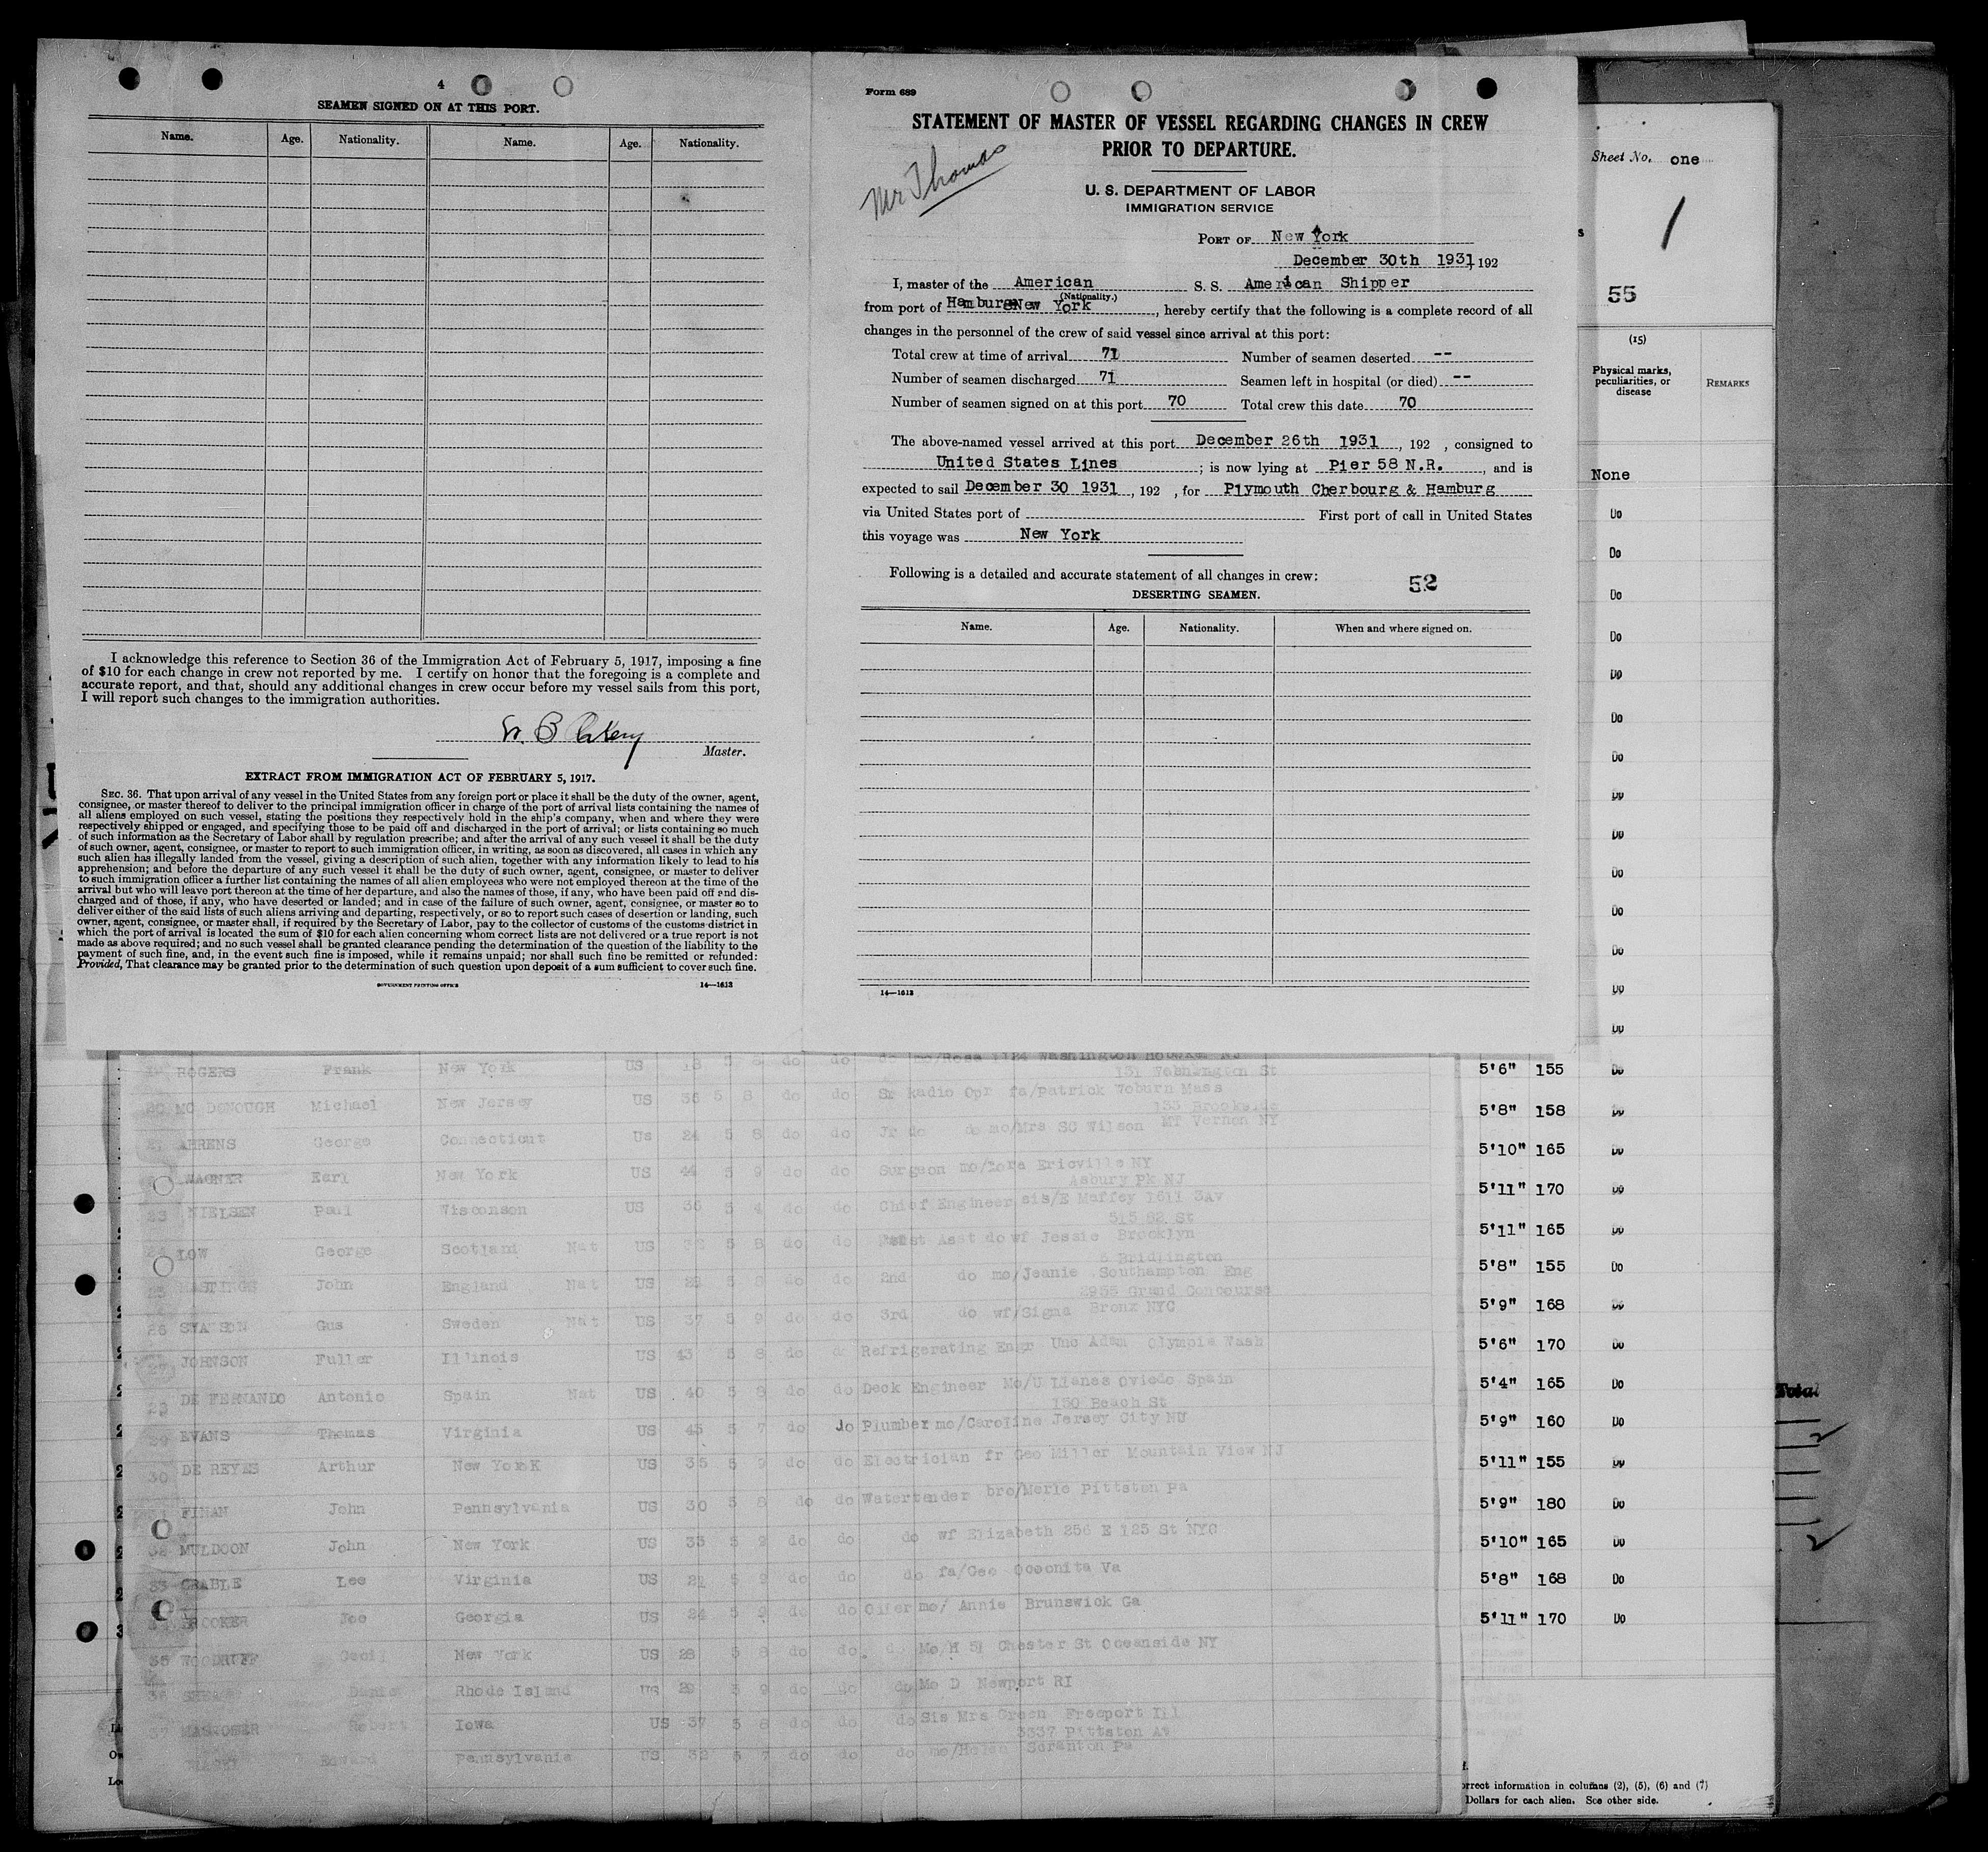 4
SEAMEN SIGNED ON AT THIS PORT.
Name. Age. Nationality. Name. Age. Nationality.
I acknowledge this reference to Section 36 of the Immigration Act of February 5, 1917, imposing a fine
of $10 for each change in crew not reported by me. I certify on honor that the foregoing is a complete and
accurate report, and that, should any additional changes in crew occur before my vessel sails from this port,
I will report such changes to the immigration authorities.
Master.
EXTRACT FROM IMMIGRATION ACT OF FEBRUARY 5, 1917.
SEC. 36. That upon arrival of any vessel in the United States from any foreign port or place it shall be the duty of the owner, agent,
consignee, or master thereof to deliver to the principal immigration officer in charge of the port of arrival lists containing the names of
all aliens employed on such vessel, stating the positions they respectively hold in the ship's company, when and where they were
respectively shipped or engaged, and specifying those to be paid off and discharged in the port of arrival; or lists containing so much
of such information as the Secretary of Labor shall by regulation prescribe; and after the arrival of any such vessel it shall be the duty
of such owner, agent, consignee, or master to report to such immigration officer, in writing, as soon as discovered, all cases in which any
such alien has illegally landed from the vessel, giving a description of such alien, together with any information likely to lead to his
apprehension; and before the departure of any such vessel it shall be the duty of such owner, agent, consignee, or master to deliver
to such immigration officer a further list containing the names of all alien employees who were not employed thereon at the time of the
arrival but who will leave port thereon at the time of her departure, and also the names of those, if any, who have been paid off and dis-
charged and of those, if any, who have deserted or landed; and in case of the failure of such owner, agent, consignee, or master so to
deliver either of the said lists of such aliens arriving and departing, respectively, or so to report such cases of desertion or landing, such
owner, agent, consignee, or master shall, if required by the Secretary of Labor, pay to the collector of customs of the customs district in
which the port of arrival is located the sum of $10 for each alien concerning whom correct lists are not delivered or a true report is not
made as above required; and no such vessel shall be granted clearance pending the determination of the question of the liability to the
payment of such fine, and, in the event such fine is imposed, while it remains unpaid; nor shall such fine be remitted or refunded:
Provided, That clearance may be granted prior to the determination of such question upon deposit of a sum sufficient to cover such fine.
GOVERNMENT PRINTING OFFICE 14—1613
Form 689
STATEMENT OF MASTER OF VESSEL REGARDING CHANGES IN CREW
PRIOR TO DEPARTURE.
Mr Thomas
U. S. DEPARTMENT OF LABOR
IMMIGRATION SERVICE
PORT OF New York
December 30th 1931, 192
I, master of the American S. S. American Shipper
(Nationality.)
from port of Hamburg New York, hereby certify that the following is a complete record of all
changes in the personnel of the crew of said vessel since arrival at this port:
Total crew at time of arrival 71 Number of seamen deserted --
Number of seamen discharged 71 Seamen left in hospital (or died) --
Number of seamen signed on at this port 70 Total crew this date 70
The above-named vessel arrived at this port December 26th 1931, 192 , consigned to
United States Lines ; is now lying at Pier 58 N.R. , and is
expected to sail December 30 1931, 192 , for Plymouth Cherbourg & Hamburg
via United States port of First port of call in United States
this voyage was New York
Following is a detailed and accurate statement of all changes in crew:
52
DESERTING SEAMEN.
Name. Age. Nationality. When and where signed on.
14—1613
Sheet No. one
1
55
(15)
Physical marks, peculiarities, or disease
REMARKS
None
Do
Do
Do
Do
Do
Do
Do
Do
Do
Do
Do
Do
Do
Do
ROGERS Frank New York US 18 5 8 do do
131 Washington St
20 MC DONOUGH Michael New Jersey US 36 5 8 do do Sr Radio Opr fa/Patrick Woburn Mass
21 AHRENS George Connecticut US 24 5 8 do do Jr do do mo/Mrs SC Wilson MT Vernon NY
WAGNER Earl New York US 44 5 9 do do Surgeon mo/Zora Ericville NY
Asbury Pk NJ
23 NIELSEN Paul Wisconson US 36 5 4 do do Chief Engineer sis/E Maffey 1611 3Av
515 82 St
LOW George Scotland Nat US 5 8 do do Asst do wf Jessie Brooklyn
5 Bridlington
25 HASTINGS John England Nat US 5 8 do do 2nd do mo/Jeanie Southampton Eng
2955 Grand Concourse
26 Gus Sweden Nat US 37 5 9 do do 3rd do wf/Sigma Bronx NYC
27 JOHNSON Fuller Illinois US 43 5 8 do Refrigerating Engr Unc Adam Olympia Wash
DE FERNANDO Antonio Spain Nat US 40 5 8 do do Deck Engineer Mo/U Llanes Oviedo Spain
150 Beach St
29 EVANS Thomas Virginia US 45 5 7 do do Plumber mo/Caroline Jersey City NJ
30 DE REYES Arthur New York US 35 5 9 do do Electrician fr Geo Miller Mountain View NJ
FINAN John Pennsylvania US 30 5 8 do do Watertender bro/Merle Pittston Pa
32 MULDOON John New York US 33 5 9 do do do wf Elizabeth 256 E 125 St NYC
33 CRABLE Lee Virginia US 21 5 9 do do do fa/Geo Oceonita Va
BROOKER Joe Georgia US 24 5 9 do do Oiler mo/ Annie Brunswick Ga
35 WOODRUFF Cecil New York US 28 5 8 do do do Mo/H 51 Chester St Oceanside NY
Rhode Island US 29 5 9 do do do Mo D Newport RI
37 Robert Iowa US 37 5 8 do do do Sis Mrs Green Freeport Ill
3337 Pittston Av
Edward Pennsylvania US 32 5 7 do do do mo/Helen Scranton Pa
5'6" 155 Do
5'8" 158 Do
5'10" 165 Do
5'11" 170 Do
5'11" 165 Do
5'8" 155 Do
5'9" 168 Do
5'6" 170 Do
5'4" 165 Do
5'9" 160 Do
5'11" 155 Do
5'9" 180 Do
5'10" 165 Do
5'8" 168 Do
5'11" 170 Do
Total
orrect information in columns (2), (5), (6) and (7)
Dollars for each alien. See other side.